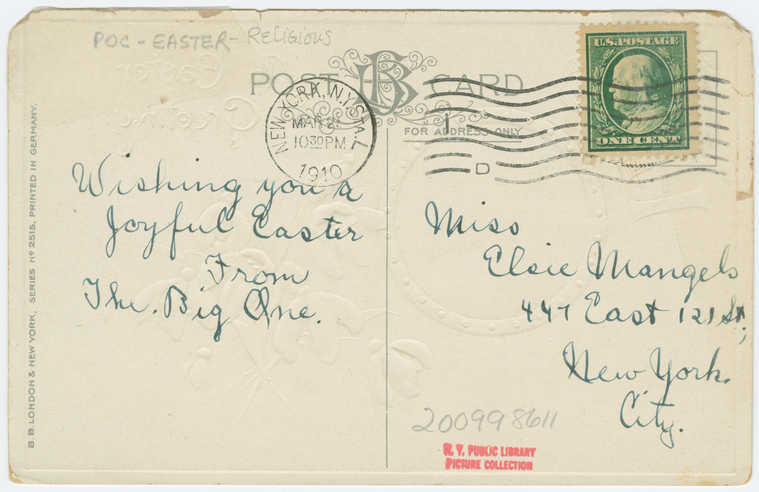 POC - EASTER - RELIGIOUS
POST CARD
FOR ADDRESS ONLY
U.S. POSTAGE
ONE CENT
NEW YORK, N.Y. STA. L
MAR 2
10 30 PM
1910
D
Wishing you a
Joyful Easter
From
The. Big One.
Miss
Elsie Mangels
447 East 121 St,
New York.
City.
200998611
N. Y. PUBLIC LIBRARY
PICTURE COLLECTION
B. B. LONDON & NEW YORK, SERIES Nº 2515, PRINTED IN GERMANY.